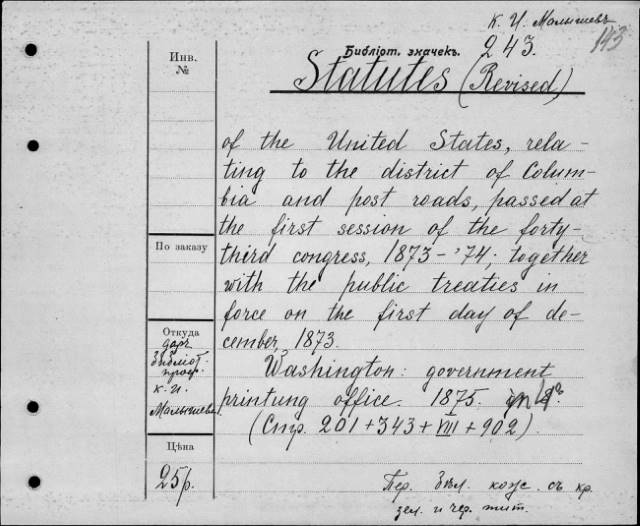 К. И. Малышевъ
Библіот. значекъ.
243.
143
Statutes (Revised)
of the United States, rela-
ting to the district of Colum-
bia and post roads, passed at
the first session of the forty-
third congress, 1873-'74; together
with the public treaties in
force on the first day of de-
cember, 1873.
Washington: government
printung office. 1875.
(Стр. 201+343+VIII+902).
Пер. Зел. кож. съ кр.
зел. и чер. тит.
Инв.
№
По заказу
Откуда
даръ
библіот.
проф.
К. И.
Малышева
Цѣна
25р.